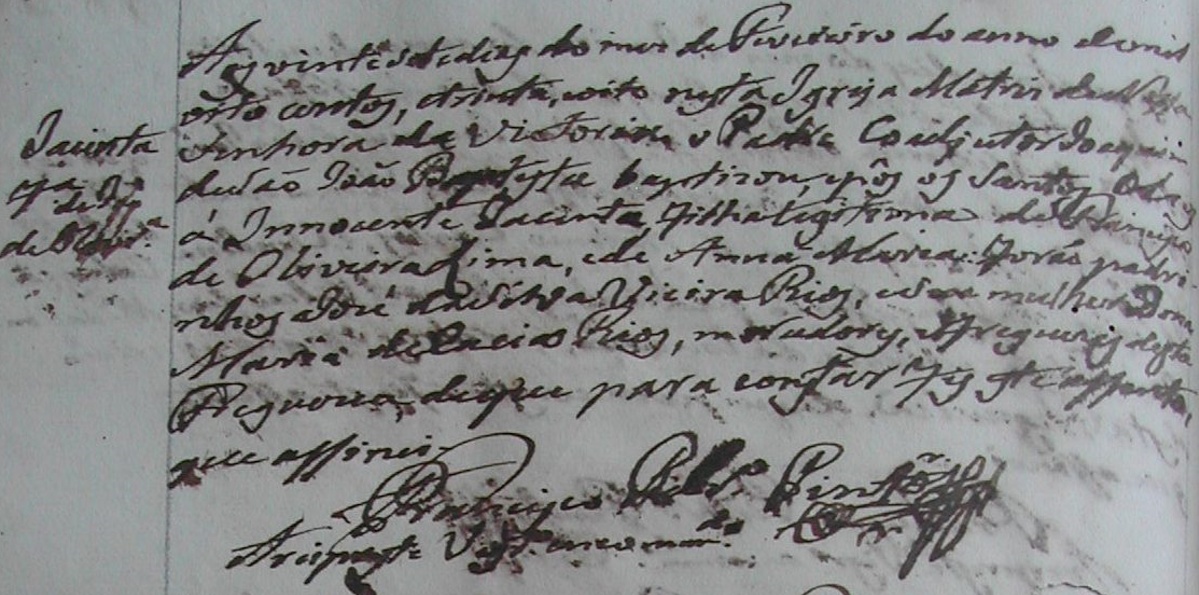 Jacinta
fa
de
de Olivra
Aos vinte sete dias do mes de Fevereiro do anno de mil
oito centos, e trinta, e oito nesta Igreja Matris de Nossa
Senhora da Victoria, o Padre Coadjutor Joaquim
de São João Baptista baptizou, e pôs os Santos Oleos
á Innocente Jacinta, Filha legitima de Francisco
de Oliveira Lima, e de Anna Maria: Forão padri
nhos José da Silva Vieira Rios, e sua mulher Dona
Maria de Rios, moradores, e Freguezes desta
Freguezia, de que para constar fis este assento,
que assinei
Francisco Pinto
Arcipreste Vigro encommdo